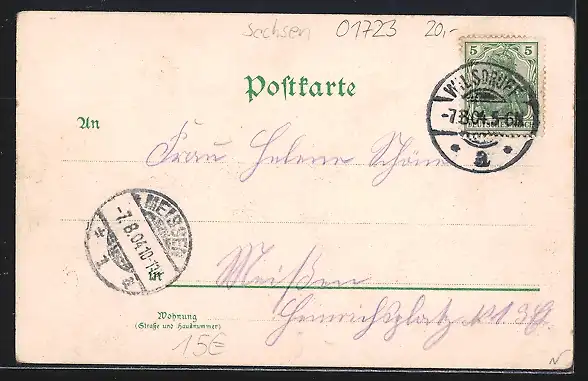 Sachsen 01723 20,-
5 5
Postkarte
WILSDRUFF
-7.8.04. 5-6N.
* a *
An
Frau Helene Schöne
MEISSEN
-7.8.04.10-11N.
* 1 a
in
Meißen
Heinrichsplatz
Wohnung
(Straße und Hausnummer)
15€
N